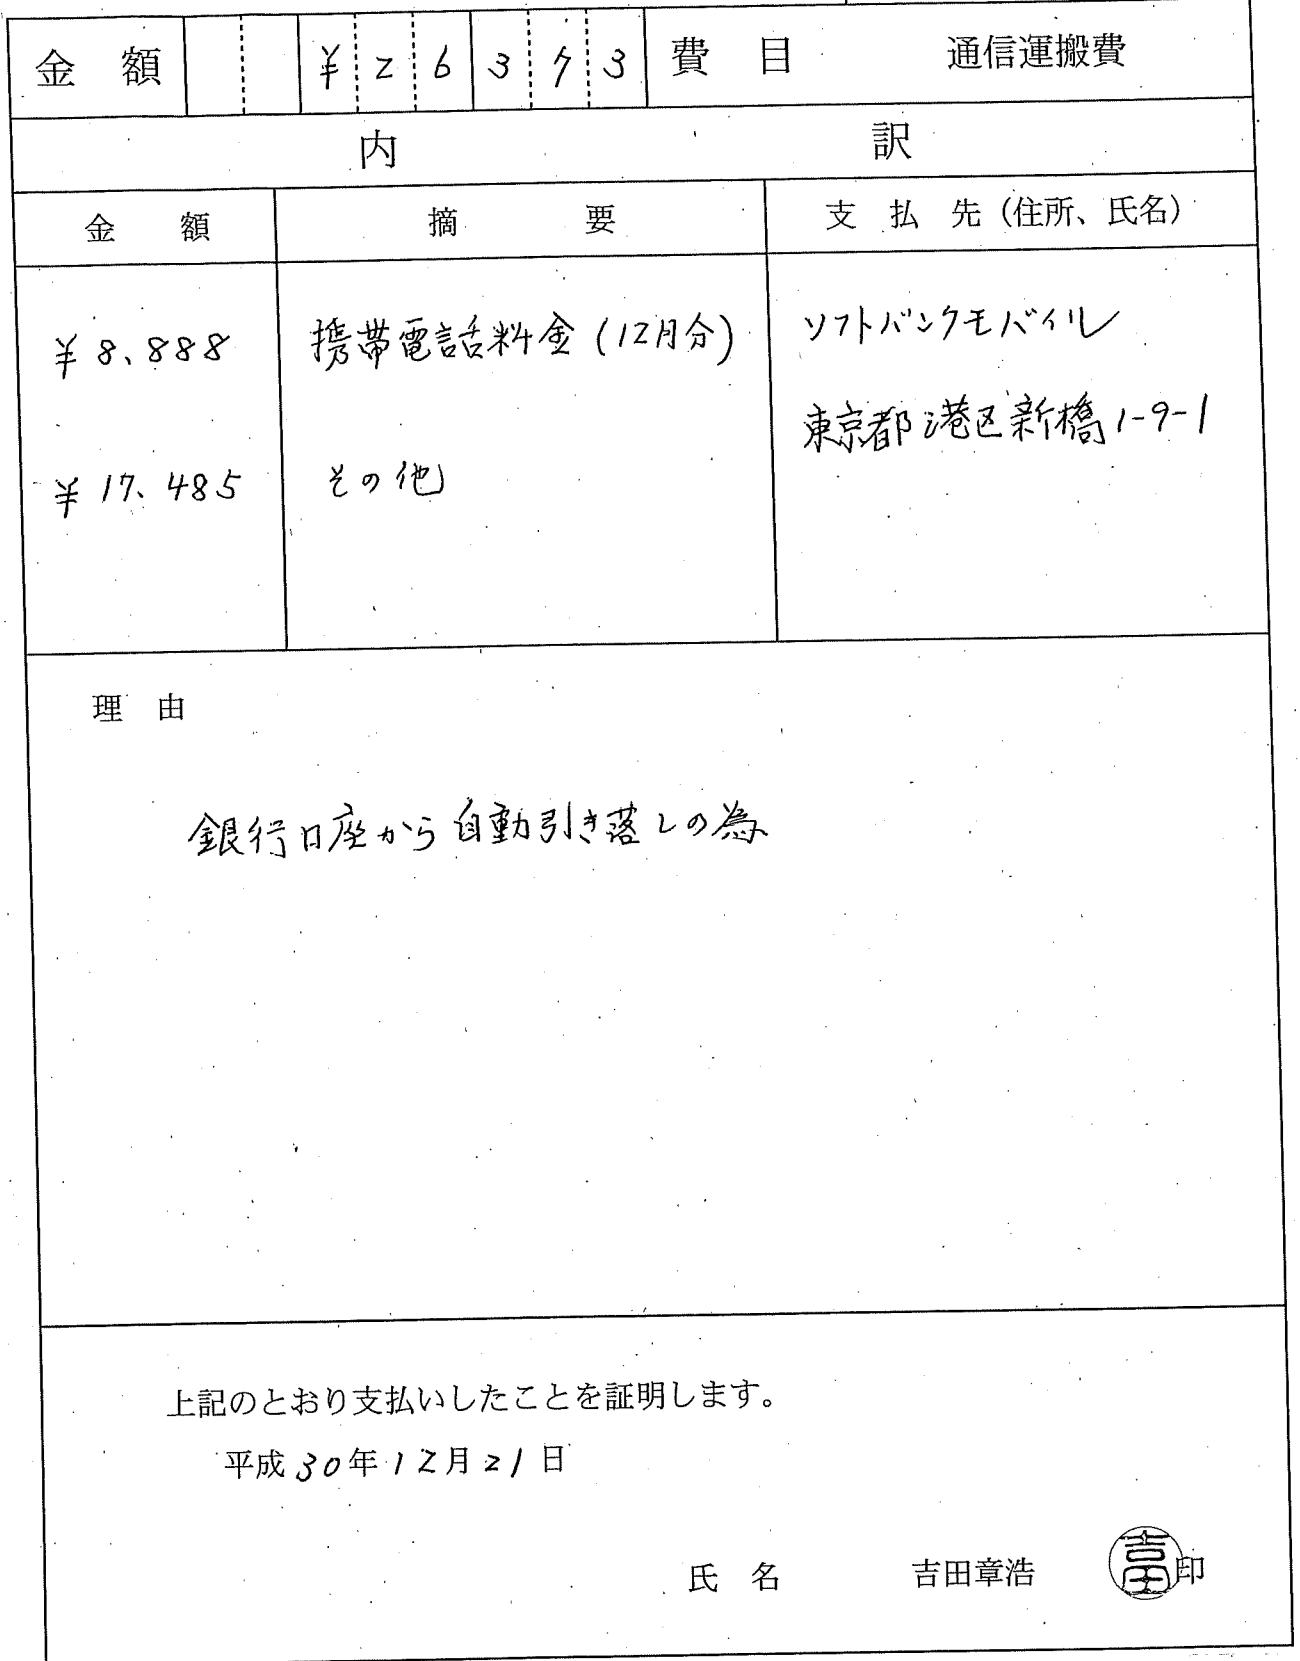 金額 ¥26373 費目 通信運搬費
内訳
金額 摘要 支払先（住所、氏名）
¥8、888 携帯電話料金（12月分） ソフトバンクモバイル
東京都港区新橋1-9-1
¥17、485 その他
理由
銀行口座から自動引き落しの為
上記のとおり支払いしたことを証明します。
平成30年12月21日
氏名 吉田章浩 吉田 印